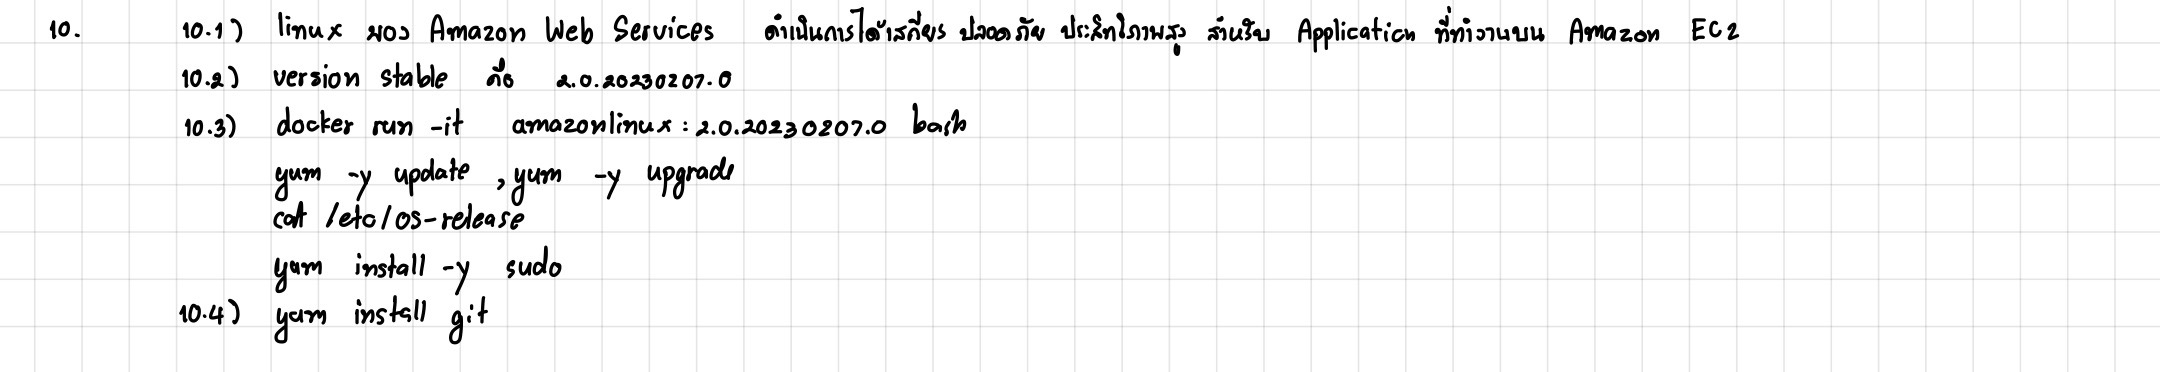 10. 10.1) linux ของ Amazon Web Services ดำเนินการได้เสถียร ปลอดภัย ประสิทธิภาพสูง สำหรับ Application ที่ทำงานบน Amazon EC2
10.2) version stable คือ 2.0.20230207.0
10.3) docker run -it amazonlinux:2.0.20230207.0 bash
yum -y update , yum -y upgrade
cat /etc/os-release
yum install -y sudo
10.4) yum install git